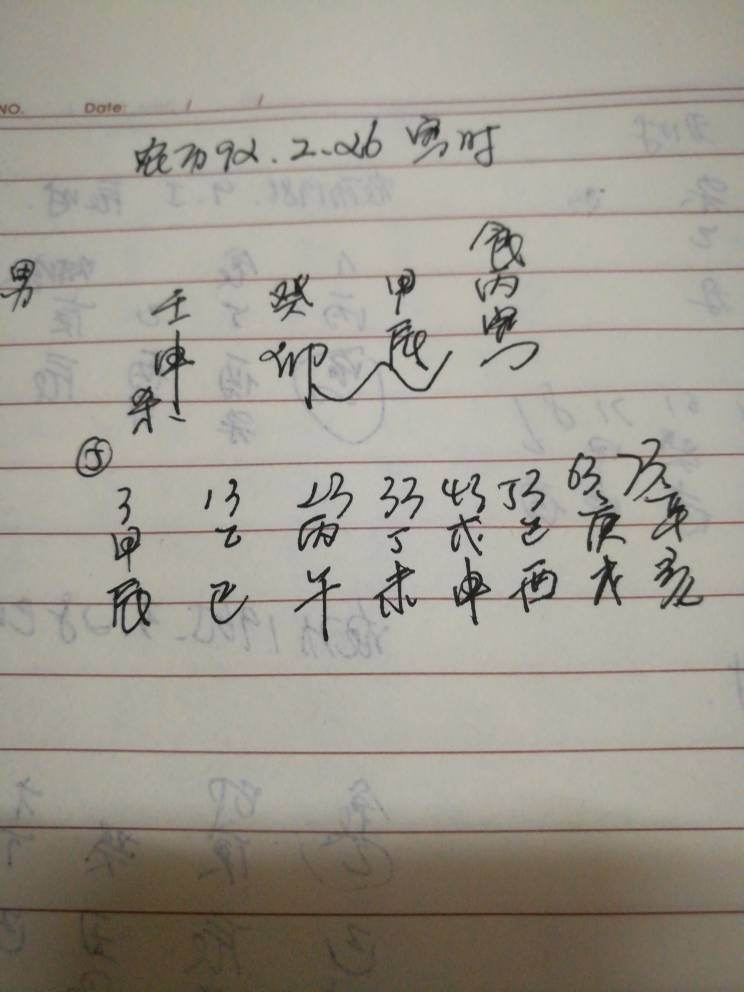 NO. Date: / /
农历92.2.26 寅时
食
男 壬 癸 甲 丙
申 卯 辰 寅
杀
⑤
3 13 23 33 43 53 63 73
甲 乙 丙 丁 戊 己 庚 辛
辰 巳 午 未 申 酉 戌 亥